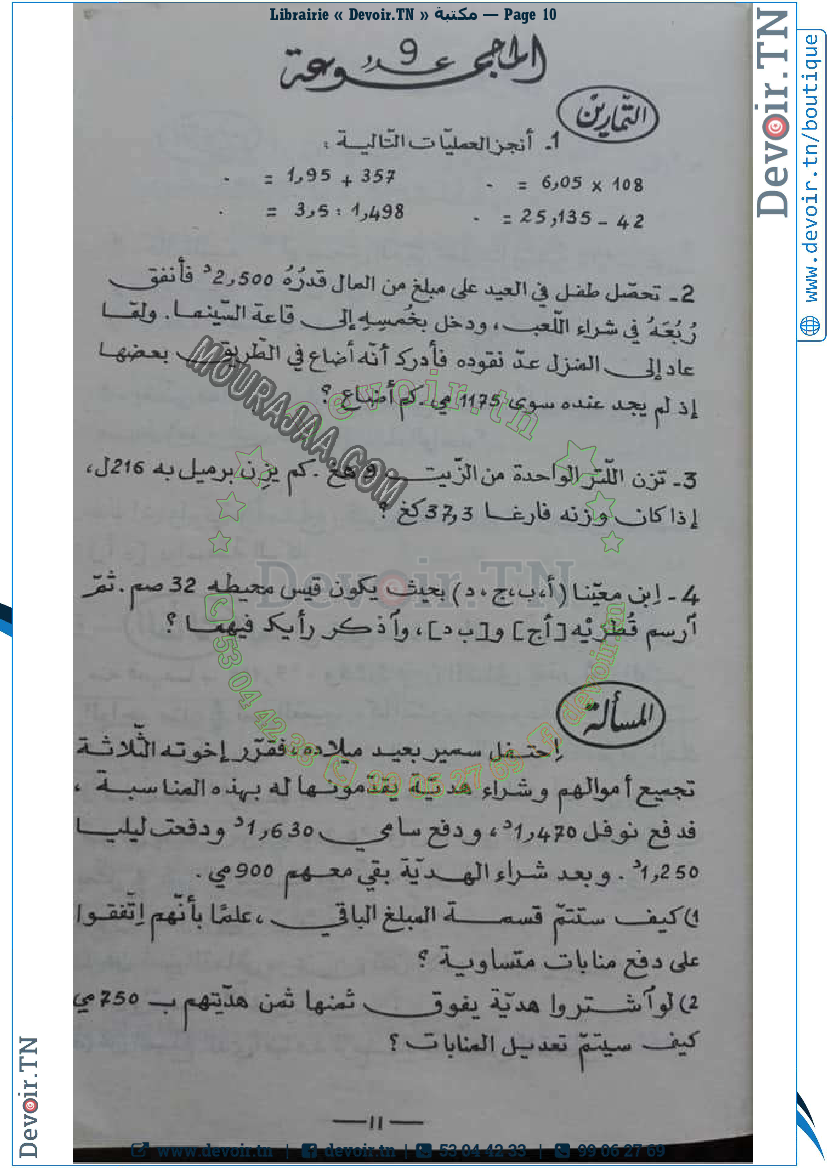 Librairie « Devoir.TN » مكتبة — Page 10
المجموعة عدد 9
التمارين
1ـ أنجز العمليّات التّالية :
108 × 6,05 = . 357 + 1,95 = .
42 – 25,135 = . 1,498 : 3,5 = .
2ـ تحصّل طفل في العيد على مبلغ من المال قدرُهُ 2,500د فأنفق
رُبُعَهُ في شراء اللّعب، ودخل بخُمسِه إلى قاعة السّينما. ولمّا
عاد إلى المنزل عدّ نقوده فأدرك أنّه أضاع في الطّريق بعضها
إذ لم يجد عنده سوى 1175 مي. كم أضاع ؟
3ـ تزن اللّتر الواحدة من الزّيت 9 هغ. كم يزِن برميل به 216ل،
إذا كان وزنه فارغا 37,3 كغ ؟
4ـ اِبن معيّنا (أ،ب،ج،د) بحيث يكون قيس محيطه 32 صم. ثمّ
اُرسم قُطريْه [أج] و[ب د]، واُذكر رأيك فيهما ؟
المسألة
اِحتفل سمير بعيد ميلاده، فقرّر إخوته الثّلاثة
تجميع أموالهم وشراء هديّة يقدّمونها له بهذه المناسبة ،
فدفع نوفل 1,470د، ودفع سامي 1,630د ودفعت ليليا
1,250د. وبعد شراء الهديّة بقي معهم 900 مي.
1) كيف ستتمّ قسمة المبلغ الباقي ، علمًا بأنّهم اِتّفقوا
على دفع منابات متساوية ؟
2) لو اُشتروا هديّة يفوق ثمنها ثمن هديّتهم بـ 750 مي
كيف سيتمّ تعديل المنابات ؟
— 11 —
www.devoir.tn | devoir.tn | 53 04 42 33 | 99 06 27 69
Devoir.TN
www.devoir.tn/boutique
Devoir.TN
MOURAJAA.COM
devoir.tn
Devoir.TN
53 04 42 33 99 06 27 69 devoir.tn